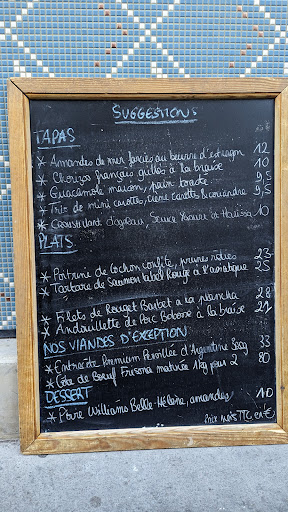 SUGGESTIONS
TAPAS
* Amandes de mer farcies au beurre d'estragon 12
* Chorizo français grillés à la braise 10
* Guacamole maison, pain toasté 9,5
* Trio de mini carotte, crème carotte & coriandre 9,5
* Croustillant d'agneau, sauce Yaourt et Harissa 10
PLATS
* Poitrine de Cochon confite, prunes rôties 23
* Tartare de Saumon label Rouge à l'asiatique 25
* Filets de Rouget Barbet a la plancha 28
* Andouillette de Porc Bobosse à la braise 21
NOS VIANDES D'EXCEPTION
* Entrecôte Premium Persillée d'Argentine 33
* Côte de Boeuf Frisona maturée 1kg pour 2 80
DESSERT
* Poire Williams Belle-Hélène, amandes 10
Prix nets TTC en €